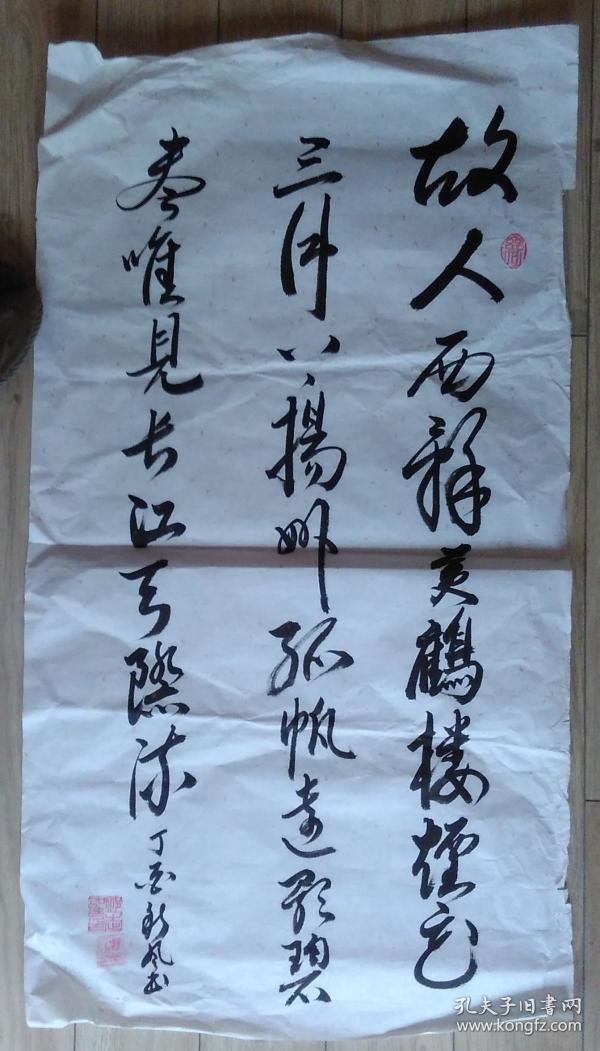 故人西辞黄鶴楼煙花
三月下揚州孤帆遠影碧
尽唯見长江天際流
丁酉
孔夫子旧书网
www.kongfz.com